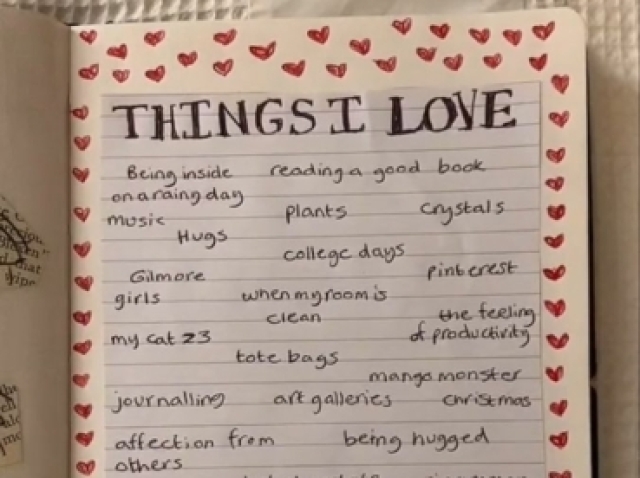 THINGS I LOVE
Being inside reading a good book
on a raing day
music plants crystals
Hugs
college days
Gilmore pinterest
girls when my room is
clean the feeling
my cat z3 of productivity
tote bags
mango monster
journalling art galleries christmas
affection from being hugged
others